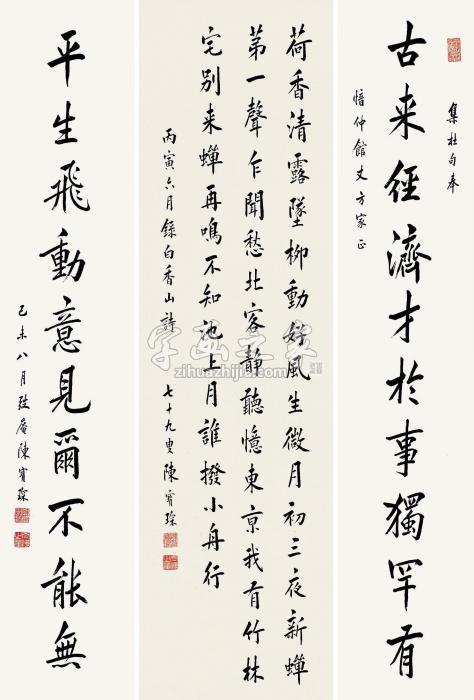 集杜句奉
古来經濟才於事獨罕有
愔仲館丈方家正
荷香清露墜柳動好風生微月初三夜新蟬
第一聲乍聞愁北客靜聽憶東京我有竹林
宅别来蟬再鳴不知池上月誰撥小舟行
丙寅六月録白香山詩 七十九叟陳寶琛
平生飛動意見爾不能無
己未八月弢庵陳寶琛
字画之家
zihuazhijia.com